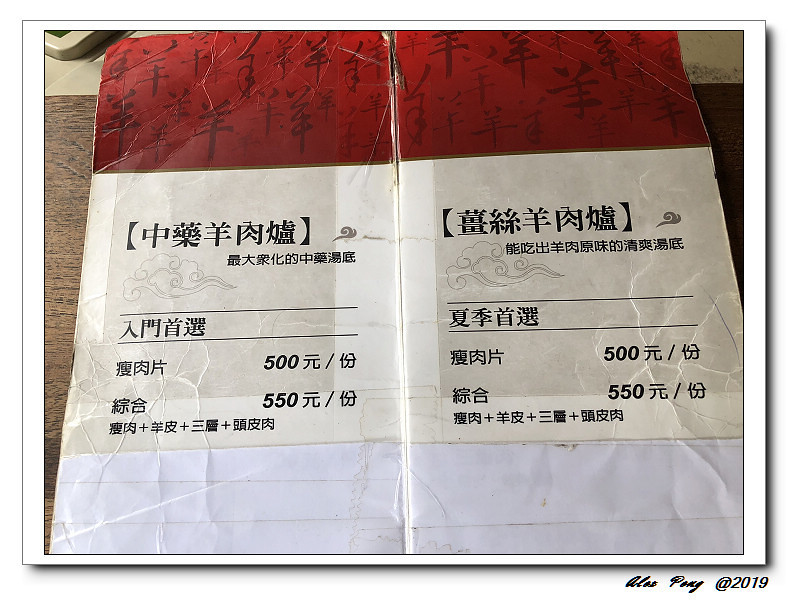 【中藥羊肉爐】
最大衆化的中藥湯底
入門首選
瘦肉片 500元/份
綜合 550元/份
瘦肉+羊皮+三層+頭皮肉
【薑絲羊肉爐】
能吃出羊肉原味的清爽湯底
夏季首選
瘦肉片 500元/份
綜合 550元/份
瘦肉+羊皮+三層+頭皮肉
Alex Peng @2019